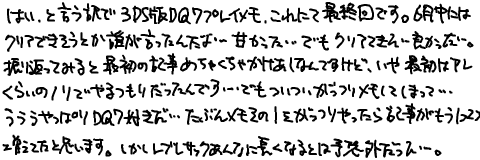 はい。と言う訳で3DS版DQ7プレイメモ、これにて最終回です。6月中には
クリアできそうとか誰が言ったんだな…甘かった…でもクリアできてい良かった…。
振り返ってみると最初の記事めちゃくちゃかけあしなんですけど、いや最初はアレ
くらいのノリでやるつもりだったんです…でもついついがっつりメモしてしまって…
うううやっぱりDQ7好きだ…たぶんメモその1をがっつりやったら記事がもう1つ2つ
増えてたと思います。しかしレブレサックあんなに長くなるとは予想外だった…。